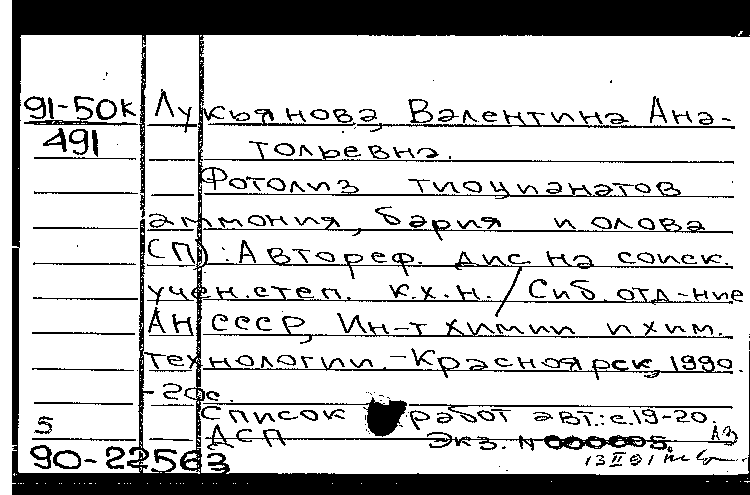 91-50к Лукьянова, Валентина Ана-
491 тольевна.
Фотолиз тиоцианатов
аммония, бария и олова
(П): Автореф. дис. на соиск.
учен. степ. к.х.н. / Сиб. отд-ние
АН СССР, Ин-т химии и хим.
технологии. - Красноярск, 1990.
- 20с.
Список работ авт.: с. 19-20.
5 ДСП Экз. N 000005.
90-22563 13 II 91